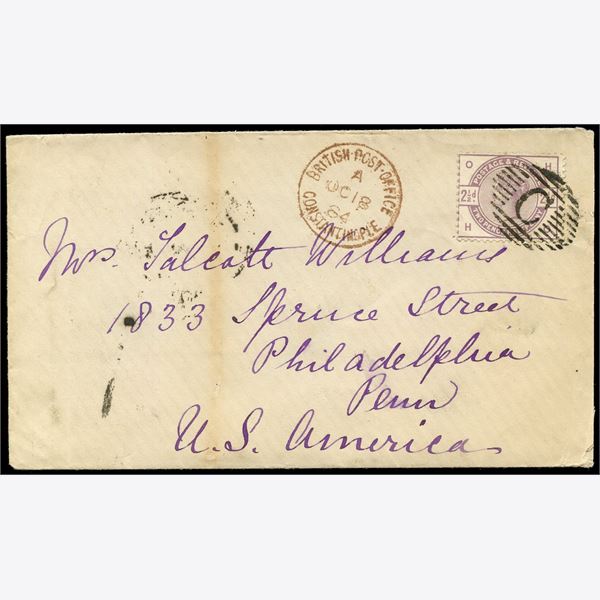 BRITISH POST-OFFICE
A
OC 18
84
CONSTANTINOPLE
O H
POSTAGE & REVE
2½d.
H
C
Mrs. Talcott Williams
1833 Spruce Street
Philadelphia
Penn
U.S. America